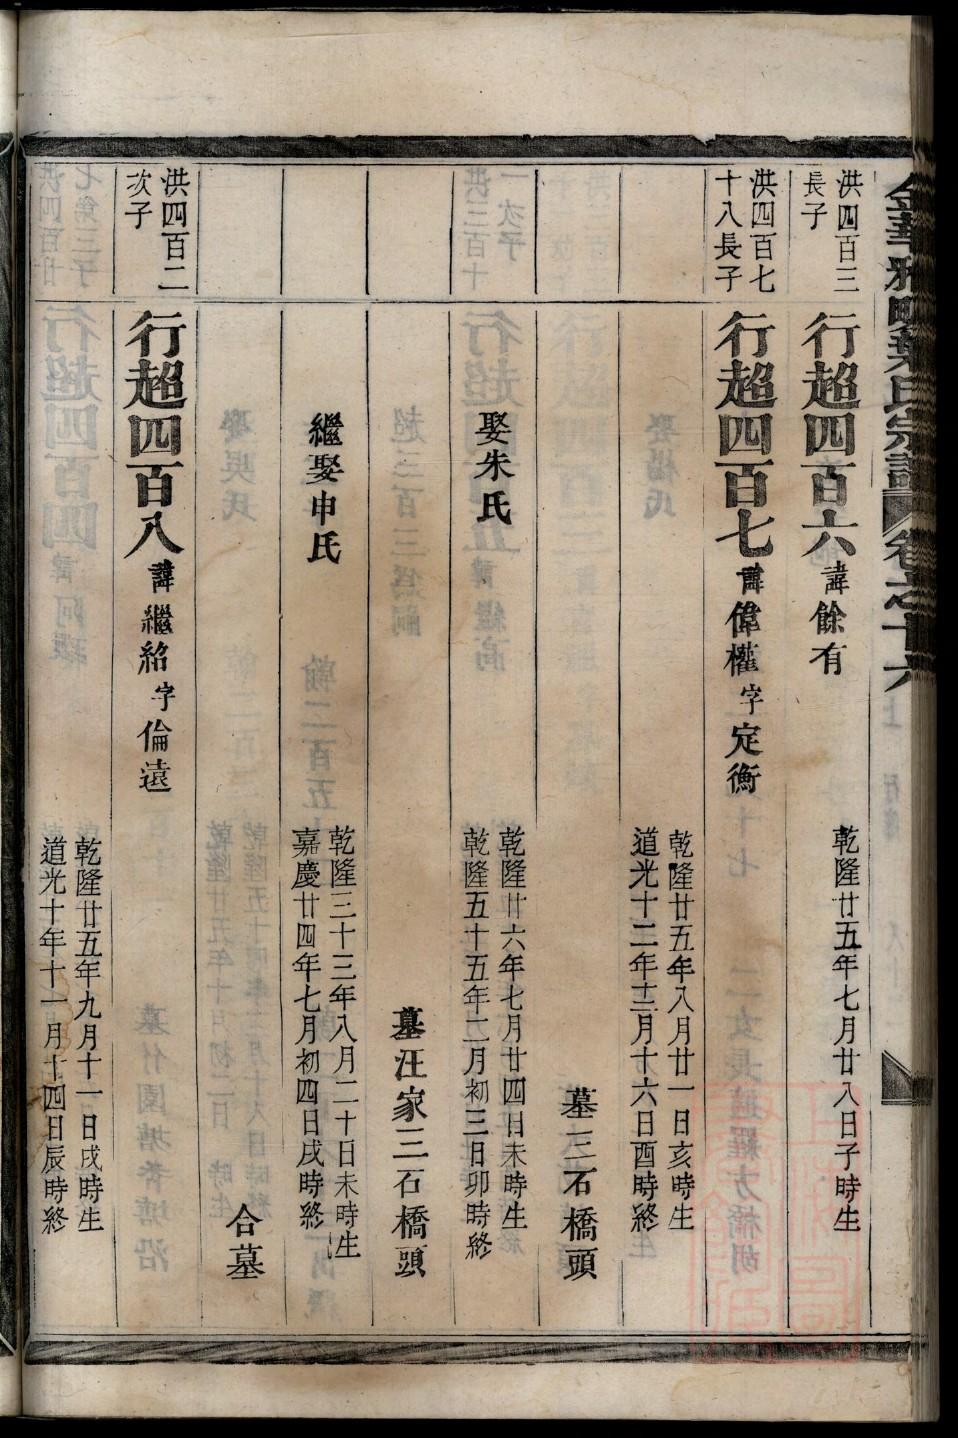 洪四百三
長子
行超四百六 諱餘有
乾隆廿五年七月廿八日子時生
洪四百七
十八長子
行超四百七 諱偉權 字定衡
乾隆廿五年八月廿一日亥時生
道光十二年十二月十六日酉時終
墓三石橋頭
娶朱氏
乾隆廿六年七月廿四日未時生
乾隆五十五年二月初三日卯時終
墓汪家三石橋頭
繼娶申氏
乾隆三十三年八月二十日未時生
嘉慶廿四年七月初四日戌時終
合墓
洪四百二
次子
行超四百八 諱繼紹 字倫遠
乾隆廿五年九月十一日戌時生
道光十年十一月十四日辰時終